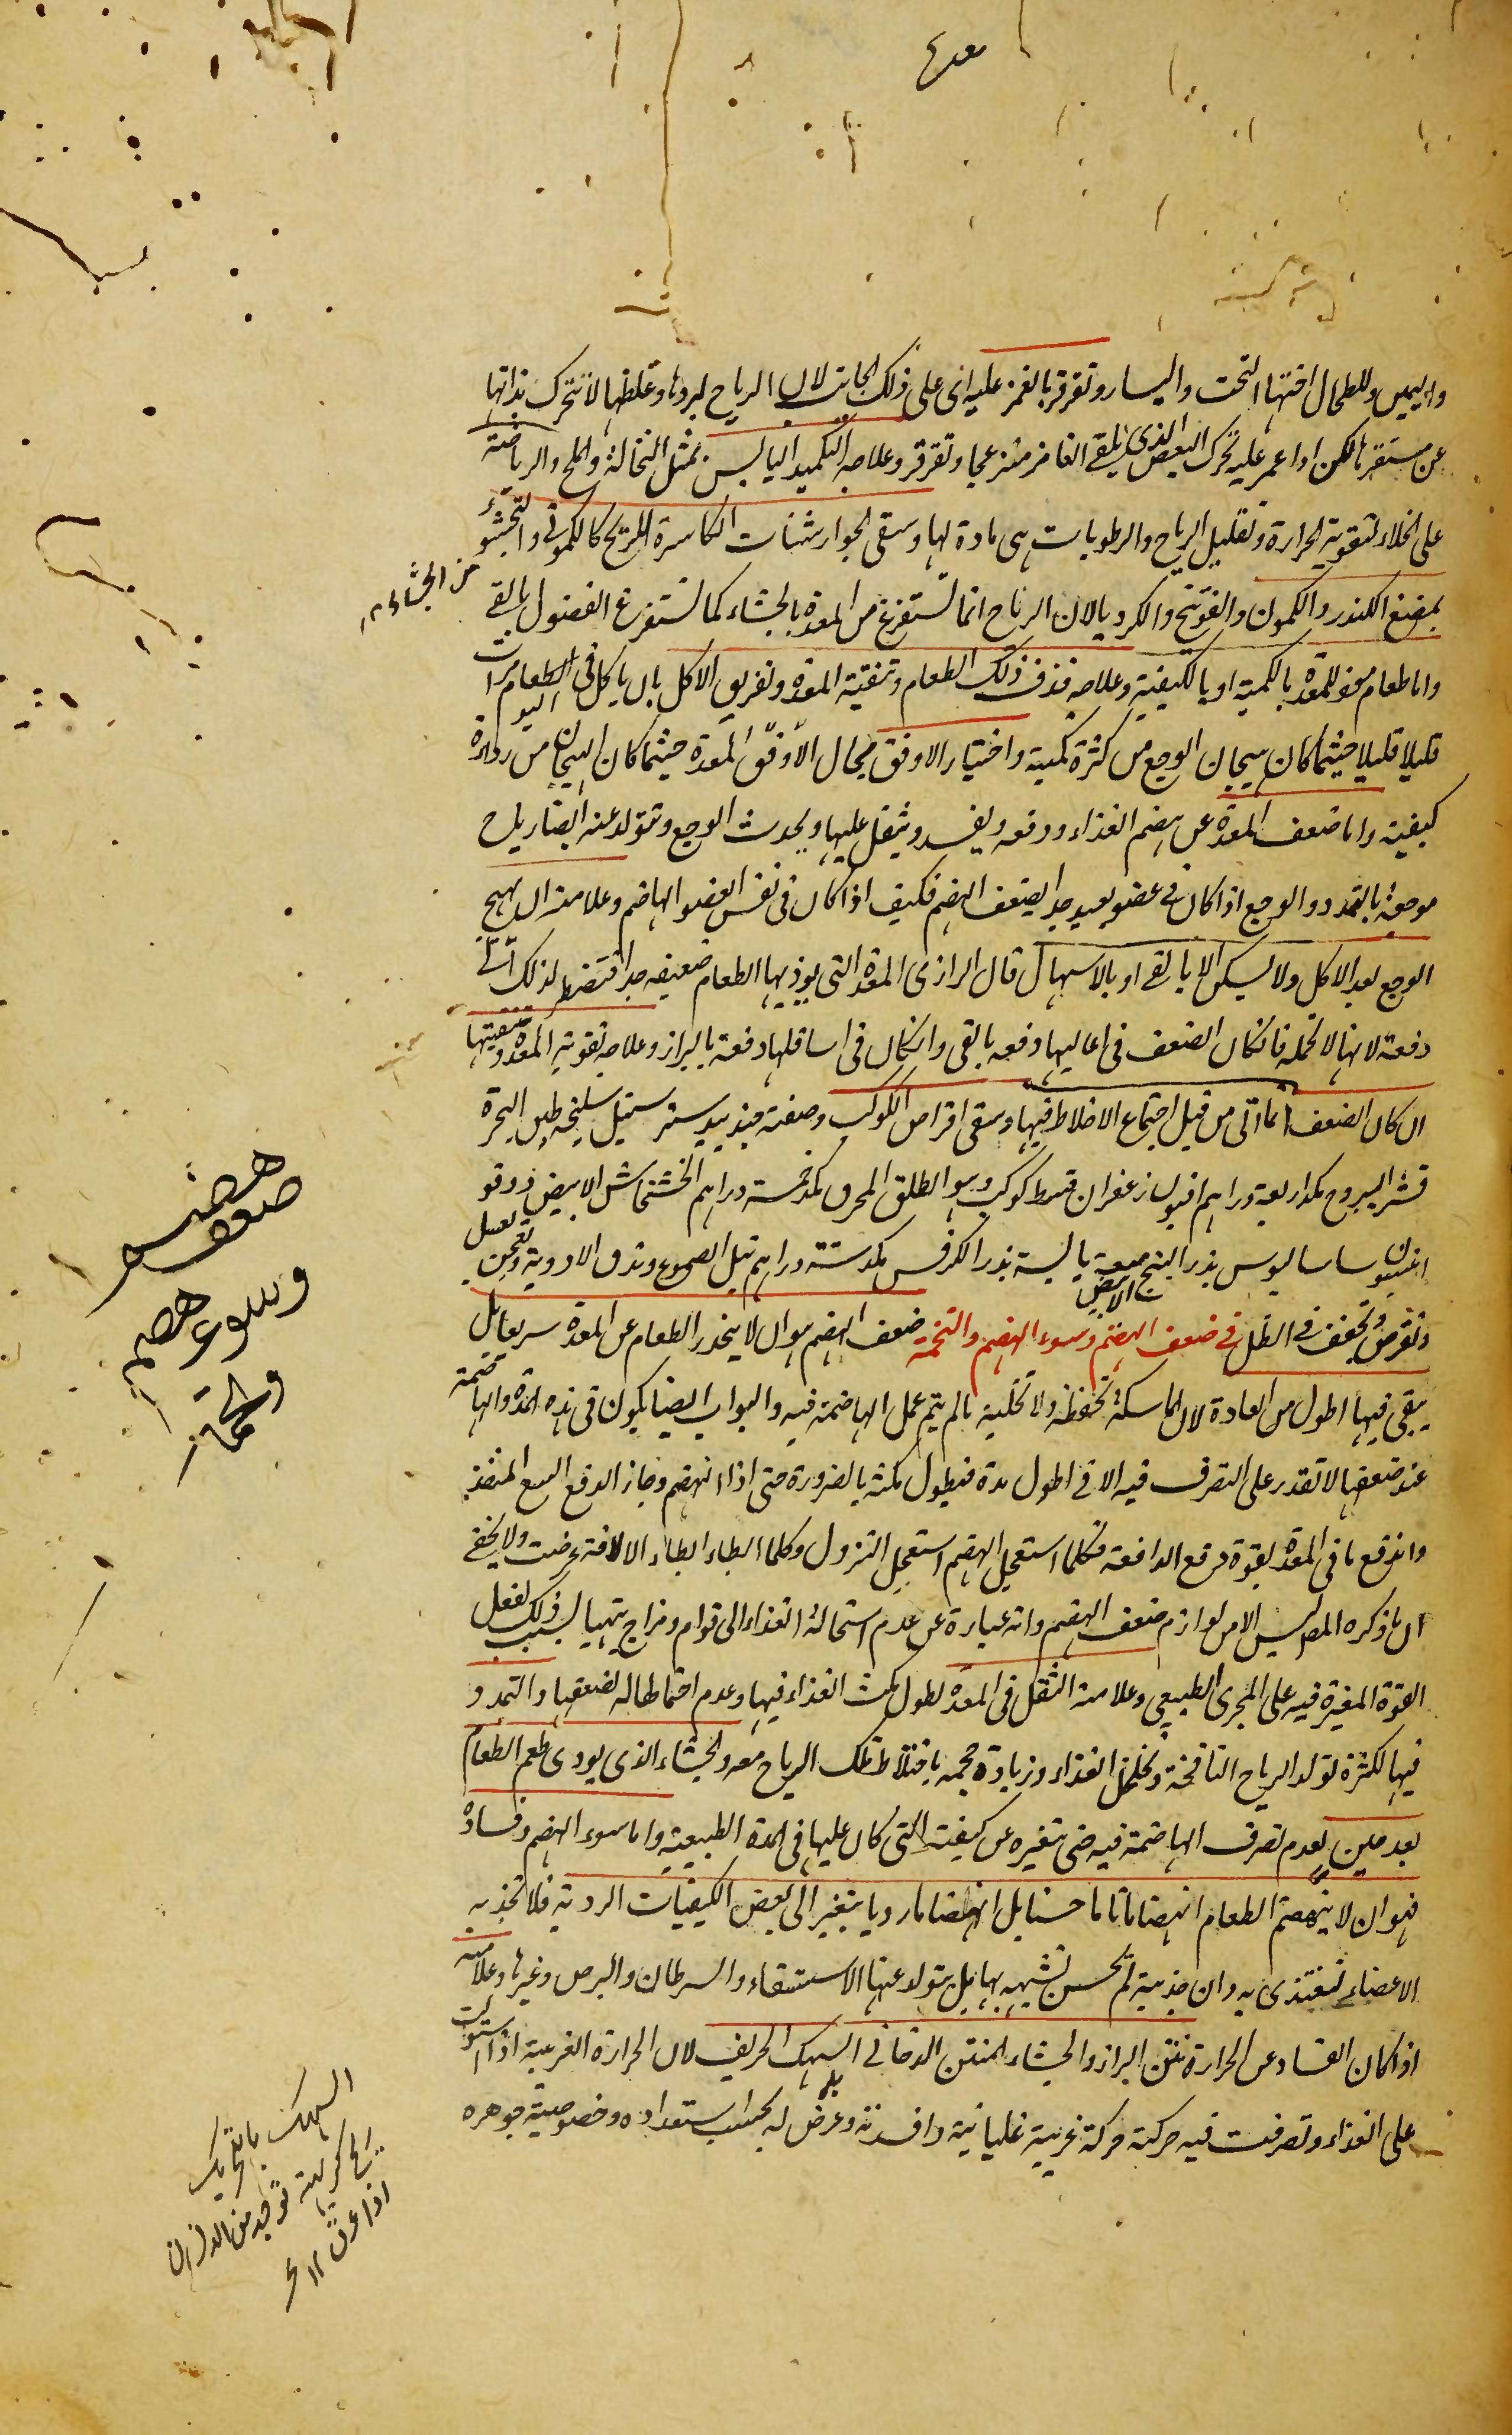 معدة
واليمين وللطحال اختها التحت واليسار وتقرقر بالغمز عليه اى على ذلك الجانب لان الرياح لبردها وغلظها لا تتحرك بذاتها
عن مستقرها لكن اذا غمز عليه تحرك البعض الذى يلقى الغامز منزعجا وتقرقر وعلاجه التكميد اليابس بمثل النخالة والملح والرياضة
على الخلاء لتقوية الحرارة وتقليل الرياح والرطوبات هى مادة لها وسقى الجوارشنات الكاسرة للريح كالكمونى والتجشؤ
من الجشاء
بمضغ الكندر والكمون والفوتنج والكرويا لان الرياح انما تستفرغ من المعدة بالجشاء كما تستفرغ الفضول بالقى
واما طعام موذ للمعدة بالكمية او بالكيفية وعلاجه قذف ذلك الطعام وتنقية المعدة وتفريق الاكل بان ياكل فى اليوم الطعام مرات
قليلا قليلا حيثما كان هيجان الوجع من كثرة كميته واختيار الاوفق بحال الاوفق المعدة حيثما كان الهيجان من رداءة
كيفيته واما ضعف المعدة عن هضم الغذاء ودفعه ويفسد ويثقل عليها ويحدث الوجع وتتولد عنه ايضا رياح
موجعة بالتمدد والوجع اذا كان فى عضو بعيد جدا يضعف الهضم فكيف اذا كان فى نفس العضو الهاضم وعلامته ان يهيج
الوجع بعد الاكل ولا يسكن الا بالقى او بالاسهال قال الرازى المعدة التى يوذيها الطعام ضعيفة جدا فتضطر لذلك الى
دفعه لانها لا تحمله فان كان الضعف فى اعاليها دفعه بالقى وان كان فى اسافلها دفعه بالبراز وعلاجه تقوية المعدة وتنقيتها
ان كان الضعف انما اتى من قبل اجتماع الاخلاط فيها وسقى اقراص الكوكب وصفته جندبيدستر سنبل سليخة طين البحرة
قشر اليبروح مكد اربعة دراهم افيون زعفران قسط كوكب وهو الطلق المحرق مكد خمسة دراهم الخشخاش الابيض دوقو
انيسون ساساليوس بذر البنج الابيض ميعة يابسة بذر الكرفس مكد ستة دراهم تبل الصموغ وتدق الادوية وتعجن بعسل
وتقرص وتجفف فى الظل فى ضعف الهضم وسوء الهضم والتخمة ضعف الهضم هو ان لا ينحدر الطعام عن المعدة سريعا بل
يبقى فيها اطول من العادة لان الماسكة تحفظه ولا تخليه ما لم يتم عمل الهاضمة فيه والبواب ايضا يكون فى هذه المدة والهاضمة
عند ضعفها لا تقدر على التصرف فيه الا فى اطول مدة فيطول مكثه بالضرورة حتى اذا انهضم وجاز الدفع اتسع المنفذ
واندفع ما فى المعدة بقوة دفع الدافعة فكلما استعجل الهضم استعجل النزول وكلما ابطاء ابطاء الا لآفة عرضت ولا يخفى
ان ما ذكره المصـ ليس الا من لوازم ضعف الهضم وانه عبارة عن عدم استحالة الغذاء الى قوام ومزاج يتهيا بسبب ذلك لفعل
القوة المغيرة فيه على المجرى الطبيعى وعلامته الثقل فى المعدة لطول مكث الغذاء فيها وعدم احتمالها له لضعفها والتمدد
فيها لكثرة تولد الرياح النافخة وتخلخل الغذاء وزيادة حجمه باختلاط تلك الرياح معه والجشاء الذى يودى طعم الطعام
بعد حين لعدم تصرف الهاضمة فيه حتى تغيره عن كيفيته التى كان عليها فى المدة الطبيعية واما سوء الهضم وفساده
فهو ان لا ينهضم الطعام انهضاما تاما حسنا بل انهضاما رديا يتغير الى بعض الكيفيات الردية فلا تجذبه
الاعضاء لتغتذى به وان جذبته لم تحسن تشبهه بها بل يتولد عنها الاستسقاء والسرطان والبرص وغيرها وعلامته
اذا كان الفساد عن الحرارة نتن البراز والجشاء المنتن الدخانى السهك الحريف لان الحرارة الغريبة اذا استولت
على الغذاء وتصرفت فيه حركته حركة غريبة غليانية وافسدته وعرض له بحسب استعداده وخصوصية جوهره
ضعف هضم
وسوء هضم
وتخمة
السهك بالتحريك
ريح كريهة توجد من الانسان
اذا عرق ١٢